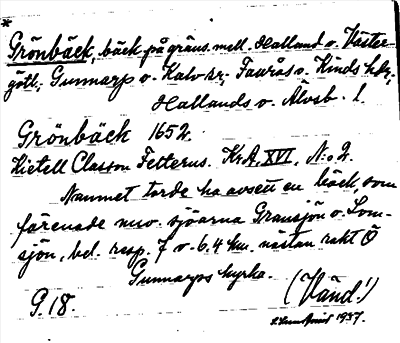 *
Grönbäck, bäck på gräns. mell. Halland o. Väster-
götl.; Gunnarp o. Kalv sr; Faurås o. Kinds hdr;
Hallands o. Älvsb. l.
Grönbäck 1652.
Kietell Classon Fetterus. KrA. XVI, N:o 2.
Namnet torde ha avsett en bäck, som
förenade nuv. sjöarna Gransjön o. Lom-
sjön, bel. resp. 7 o. 6.4 km. nästan rakt Ö
Gunnarps kyrka.
(Vänd!)
G. 18.
1937.